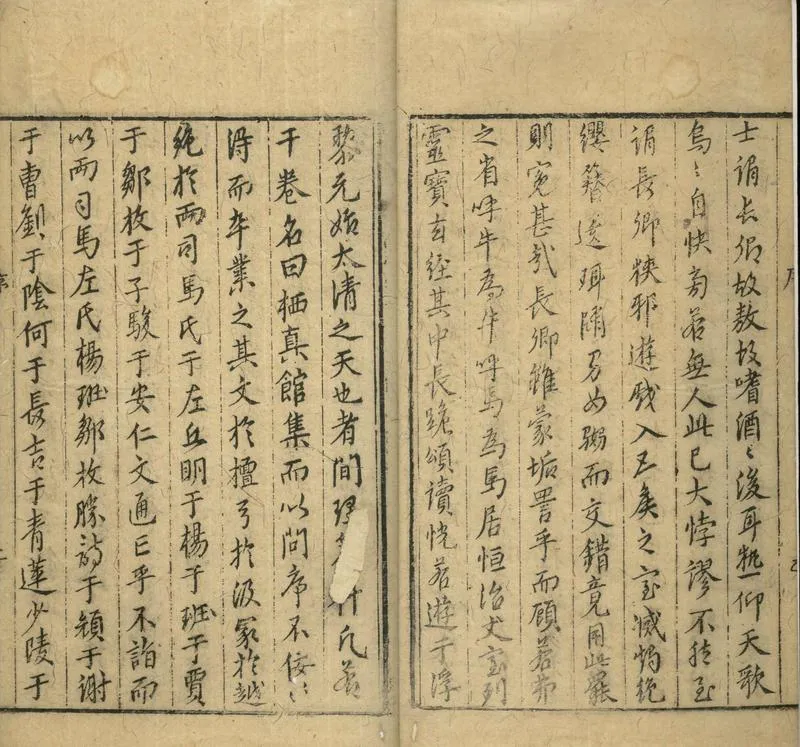 士謂長卿故敖故嗜酒〻後耳熱仰天歌
烏〻自快旁若無人此已大悖謬不経至
謂長卿狹邪遊戲入王矦之室滅燭絶
纓簪遺珥隋舄如粥而交錯竟用此罷
則寃甚哉長卿雖蒙垢詈乎而顧若弗
之省呼牛為牛呼馬為馬居恒治丈室列
靈寶玄經其中長跪頌讀恍若遊于浮
黎元始太清之天也者間什凡若
干卷名曰栖真館集而以問序不佞〻
淂而卒業之其文於檀弓於汲冡於越
絶於兩司馬氏于左丘明于楊于班于賈
于鄒枚于子駿于安仁文通已乎不詣而
以兩司馬左氏楊班鄒枚勝詩于顏于謝
于曹劉于陰何于長吉于青蓮少陵于